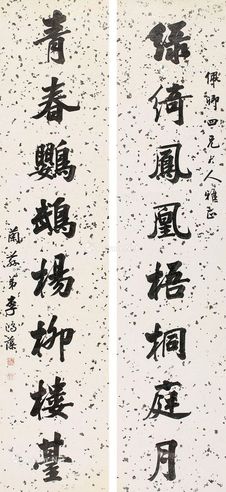 佩卿四兄大人雅正
绿绮鳳凰梧桐庭月
青春鸚鵡楊柳樓臺
蘭蓀弟李鴻藻